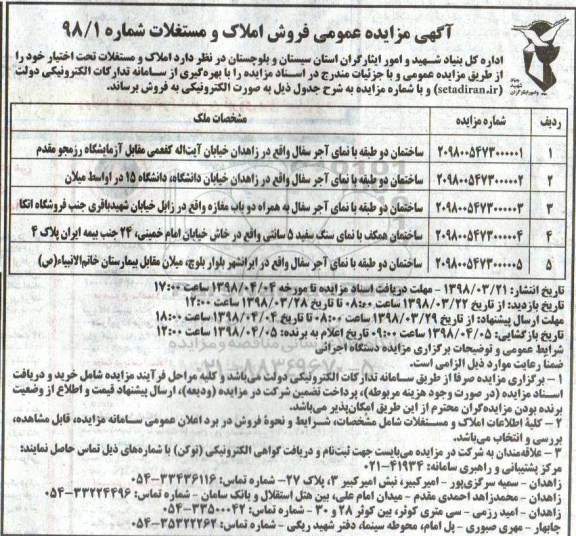 آگهی مزایده عمومی فروش املاک و مستغلات شماره ۹۸/۱
اداره کل بنیاد شهید و امور ایثارگران استان سیستان و بلوچستان در نظر دارد املاک و مستغلات تحت اختیار خود را
از طریق مزایده عمومی و با جزئیات مندرج در اسناد مزایده را با بهره‌گیری از سامانه تدارکات الکترونیکی دولت
(setadiran.ir) و با شماره مزایده به شرح جدول ذیل به صورت الکترونیکی به فروش برساند.
بنیاد شهید وامور ایثارگران
ردیف شماره مزایده مشخصات ملک
۱ ۲۰۹۸۰۰۵۴۷۳۰۰۰۰۰۱ ساختمان دو طبقه با نمای آجر سفال واقع در زاهدان خیابان آیت‌اله کفعمی مقابل آزمایشگاه رزمجو مقدم
۲ ۲۰۹۸۰۰۵۴۷۳۰۰۰۰۰۲ ساختمان دو طبقه با نمای آجر سفال واقع در زاهدان خیابان دانشگاه، دانشگاه ۱۵ در اواسط میلان
۳ ۲۰۹۸۰۰۵۴۷۳۰۰۰۰۰۳ ساختمان دو طبقه با نمای آجر سفال به همراه دو باب مغازه واقع در زابل خیابان شهیدباقری جنب فروشگاه اتکا
۴ ۲۰۹۸۰۰۵۴۷۳۰۰۰۰۰۴ ساختمان همکف با نمای سنگ سفید ۵ سانتی واقع در خاش خیابان امام خمینی، ۲۴ جنب بیمه ایران پلاک ۴
۵ ۲۰۹۸۰۰۵۴۷۳۰۰۰۰۰۵ ساختمان دو طبقه با نمای آجر سفال واقع در ایرانشهر بلوار بلوچ، میلان مقابل بیمارستان خاتم‌الانبیاء(ص)
تاریخ انتشار: ۱۳۹۸/۰۳/۲۱ - مهلت دریافت اسناد مزایده تا مورخه ۱۳۹۸/۰۴/۰۴ ساعت ۱۷:۰۰
تاریخ بازدید: از تاریخ ۱۳۹۸/۰۳/۲۲ ساعت ۰۸:۰۰ تا تاریخ ۱۳۹۸/۰۳/۲۸ ساعت ۱۲:۰۰
مهلت ارسال پیشنهاد: از تاریخ ۱۳۹۸/۰۳/۲۹ ساعت ۰۸:۰۰ تا تاریخ ۱۳۹۸/۰۴/۰۴ ساعت ۱۸:۰۰
تاریخ بازگشایی: ۱۳۹۸/۰۴/۰۵ ساعت ۰۹:۰۰ تاریخ اعلام به برنده: ۱۳۹۸/۰۴/۰۵ ساعت ۱۲:۰۰
شرایط عمومی و توضیحات برگزاری مزایده دستگاه اجرائی
ضمنا رعایت موارد ذیل الزامی است.
۱ - برگزاری مزایده صرفا از طریق سامانه تدارکات الکترونیکی دولت می‌باشد و کلیه مراحل فرآیند مزایده شامل خرید و دریافت
اسناد مزایده (در صورت وجود هزینه مربوطه)، پرداخت تضمین شرکت در مزایده (ودیعه)، ارسال پیشنهاد قیمت و اطلاع از وضعیت
برنده بودن مزایده‌گران محترم از این طریق امکان‌پذیر می‌باشد.
۲ - کلیه اطلاعات املاک و مستغلات شامل مشخصات، شرایط و نحوه فروش در برد اعلان عمومی سامانه مزایده، قابل مشاهده،
بررسی و انتخاب می‌باشد.
۳ - علاقه‌مندان به شرکت در مزایده می‌بایست جهت ثبت‌نام و دریافت گواهی الکترونیکی (توکن) با شماره‌های ذیل تماس حاصل نمایند؛
مرکز پشتیبانی و راهبری سامانه: ۴۱۹۳۴-۰۲۱
زاهدان - سمیه سرگزی‌پور - امیرکبیر، نبش امیرکبیر ۳، پلاک ۲۷- شماره تماس: ۳۳۴۳۶۱۱۶-۰۵۴
زاهدان - محمدزاهد احمدی مقدم - میدان امام علی، بین هتل استقلال و بانک سامان - شماره تماس: ۳۳۲۲۴۴۹۶-۰۵۴
زاهدان - امید رزمی - سی متری کوثر، بین کوثر ۲۸ و ۳۰ - شماره تماس: ۳۳۵۰۰۰۴۲-۰۵۴
چابهار - مهری صبوری - پل امام، محوطه سینما، دفتر شهید ریگی - شماره تماس: ۳۵۳۲۲۲۶۲-۰۵۴